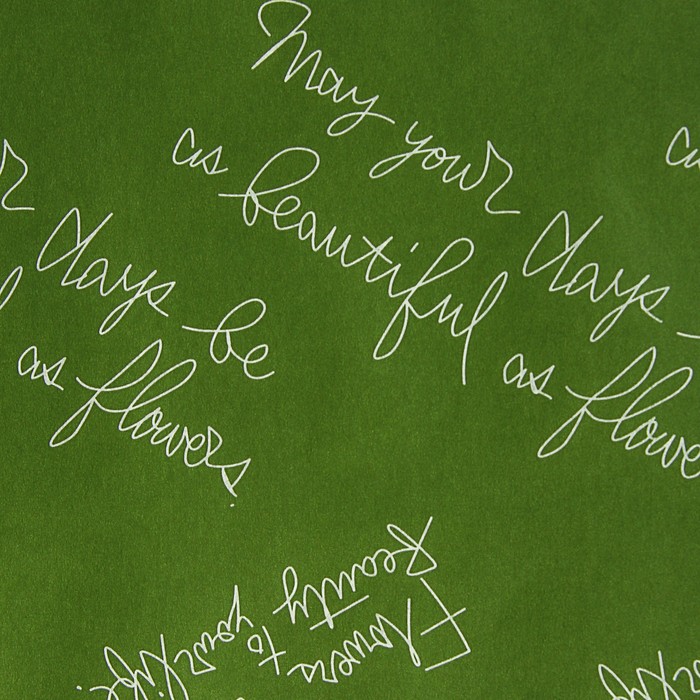 May your days
as beautiful
days be
as flowers.
as flowe
Flowers to your life.
Beauty